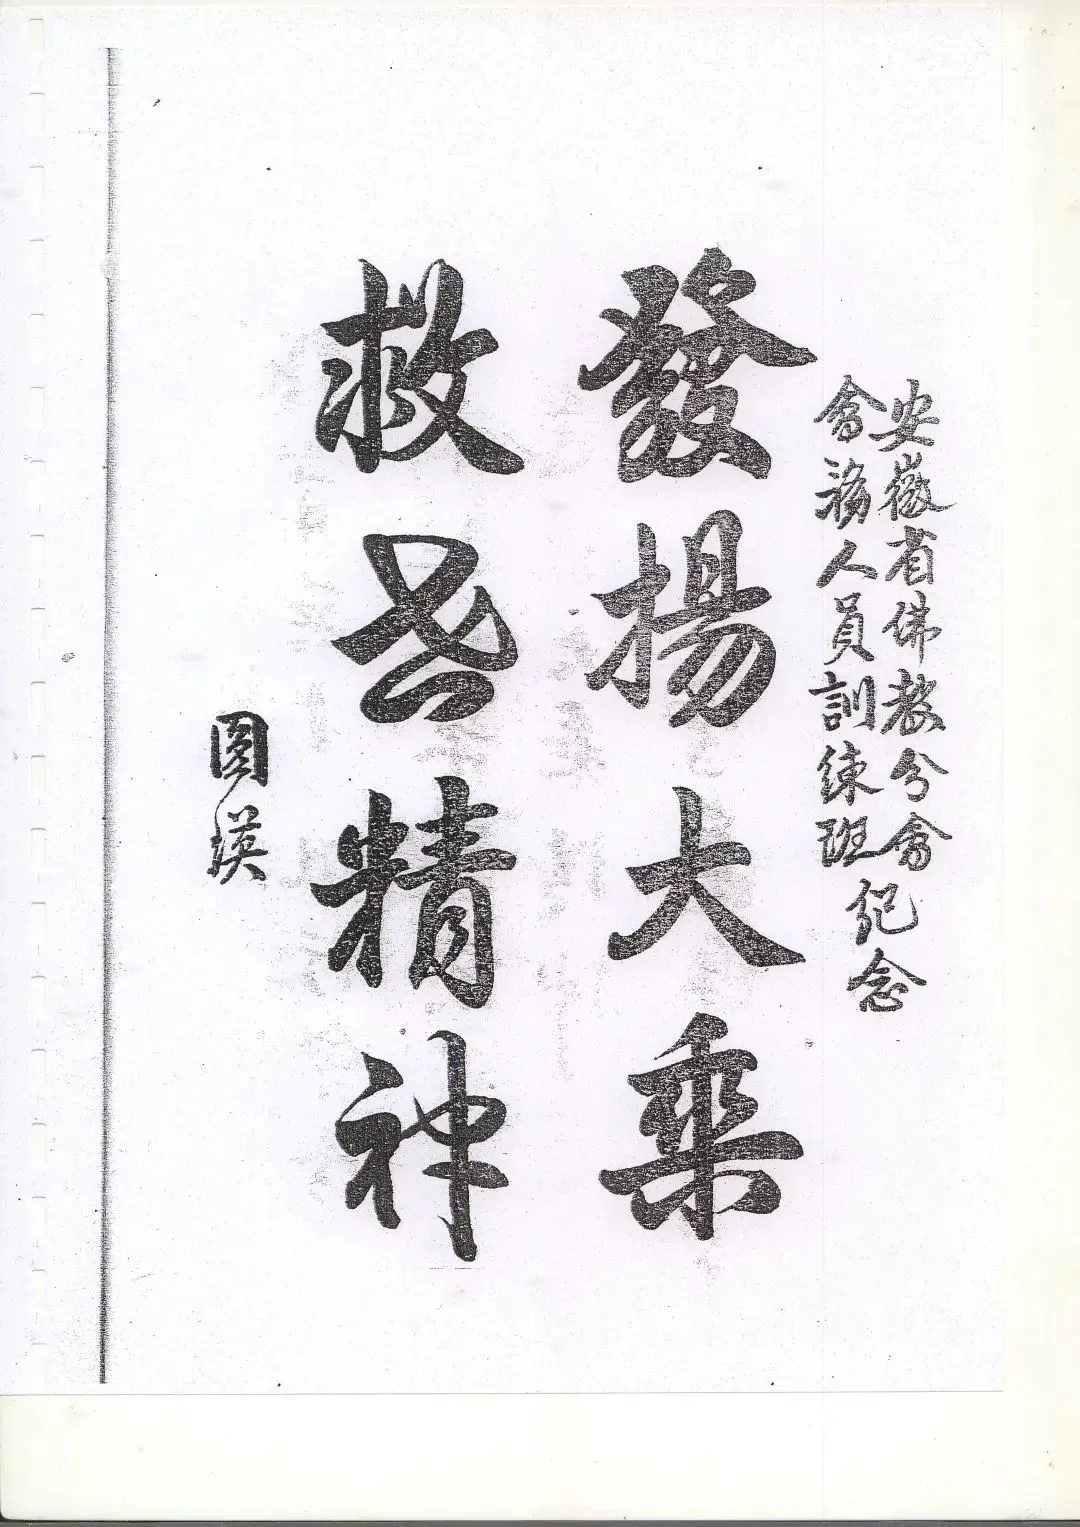 安徽省佛教分會
會務人員訓練班紀念
發揚大乘
救世精神
圓瑛